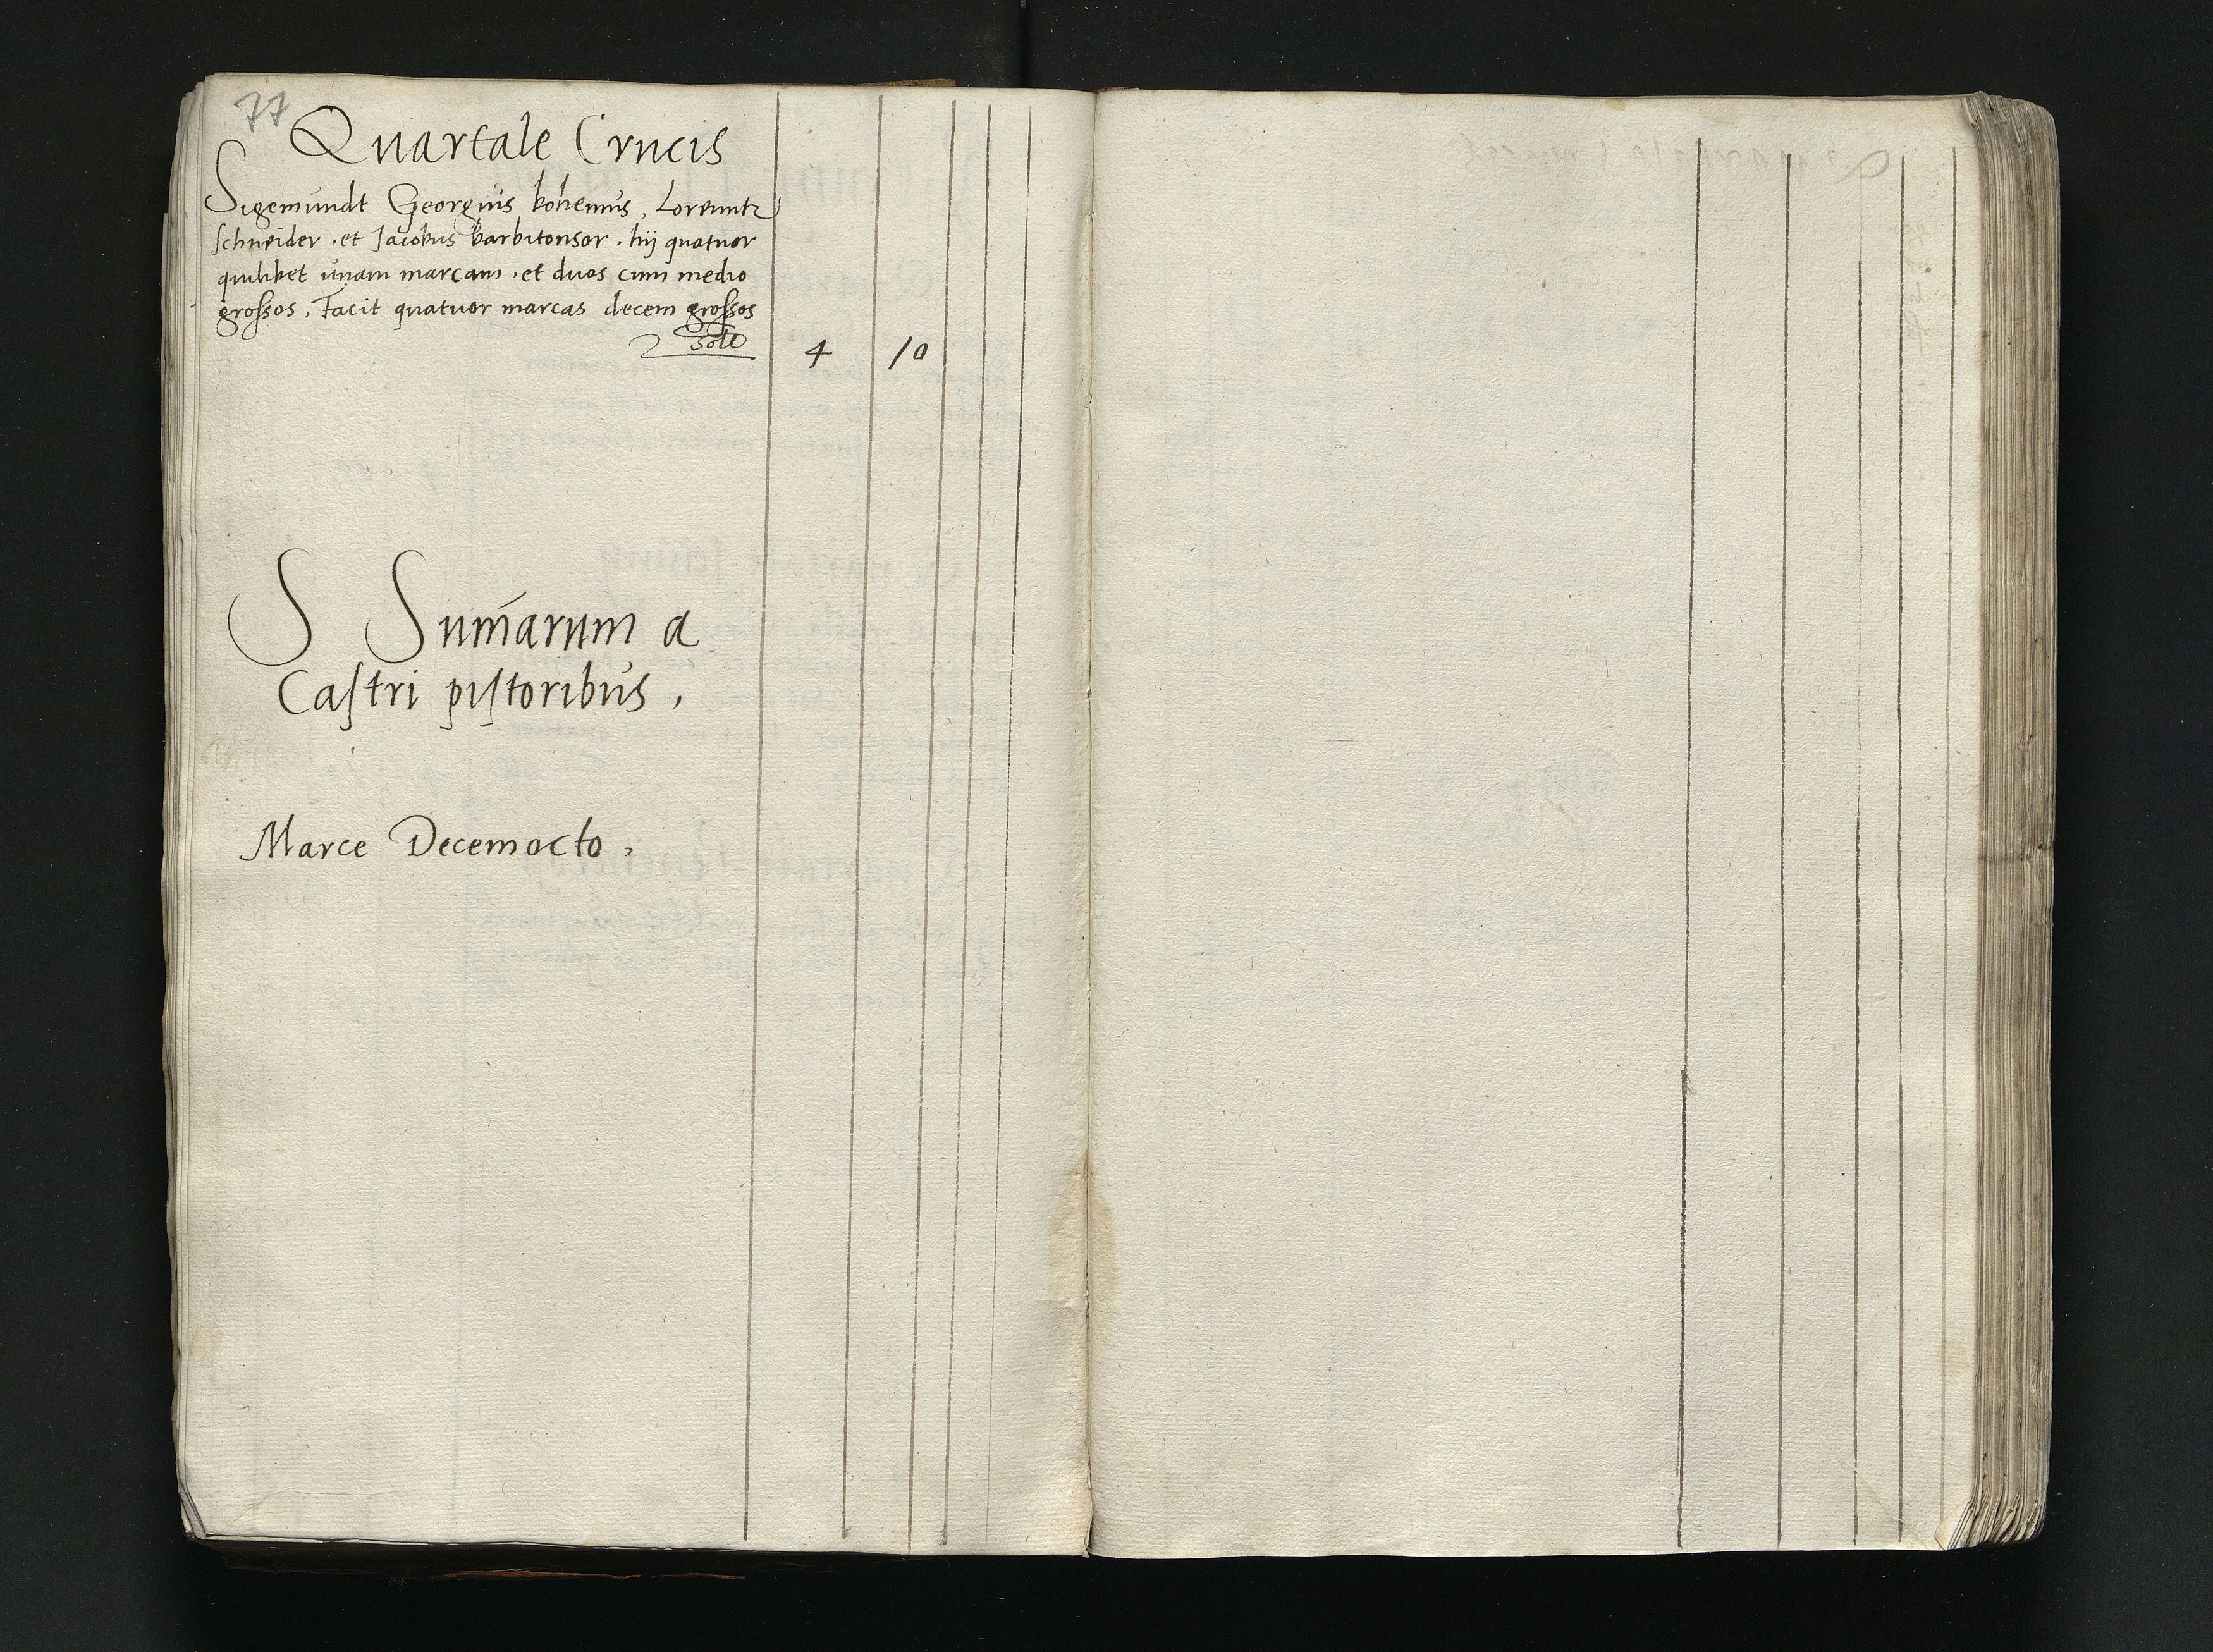 77
Quartale Crucis
Sigemundt Georgius bohemus, Lorenntz
schneider. et Jacobus barbitonsor. hij quatuor
quilibet unam marcam. et duos cum medio
grossos, Facit quatuor marcas decem grossos
4 10
S Sum̄arum a
Castri pistoribus,
Marce Decemocto,